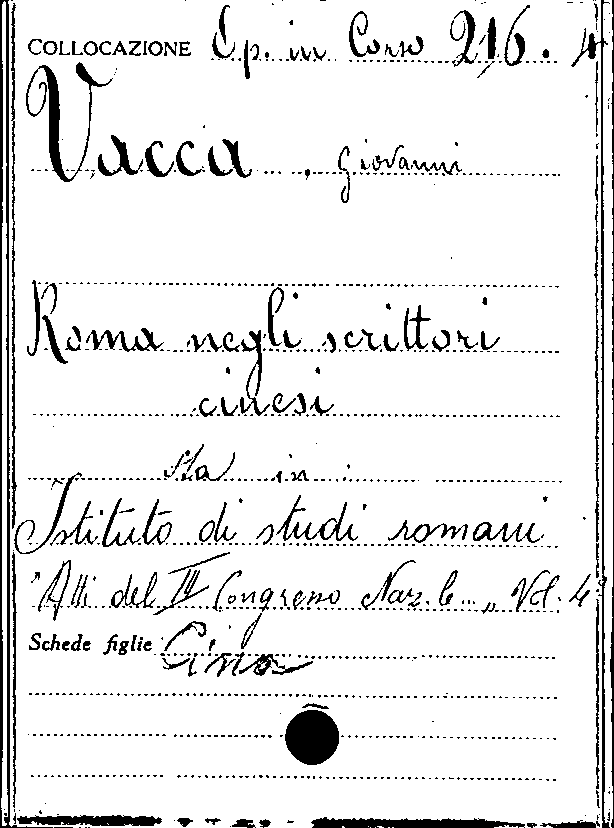 COLLOCAZIONE Op. in Corso 216. 4
Vacca, Giovanni
Roma negli scrittori
cinesi
sta in:
Istituto di studi romani
"Atti del Congresso Naz.le..„ Vol. 4°
Schede figlie: Cina